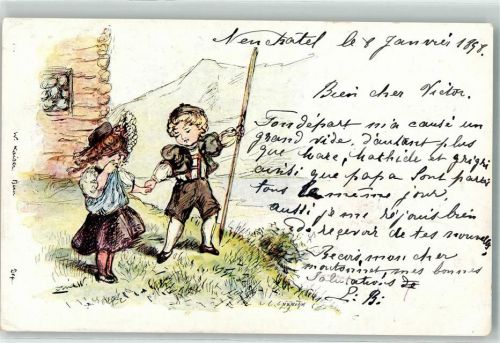 Neuchatel le 8 Janvier 1898.
Bien cher Victor.
Ton départ m'a causé un
grand vide, d'autant plus
que Marc, Mathilde et
ainsi que papa sont partis
tous le même jour,
aussi je me réjouis bien
de recevoir de tes nouvelles
Reçois, mon cher
mes bonnes
Salutations de
L. B.
24